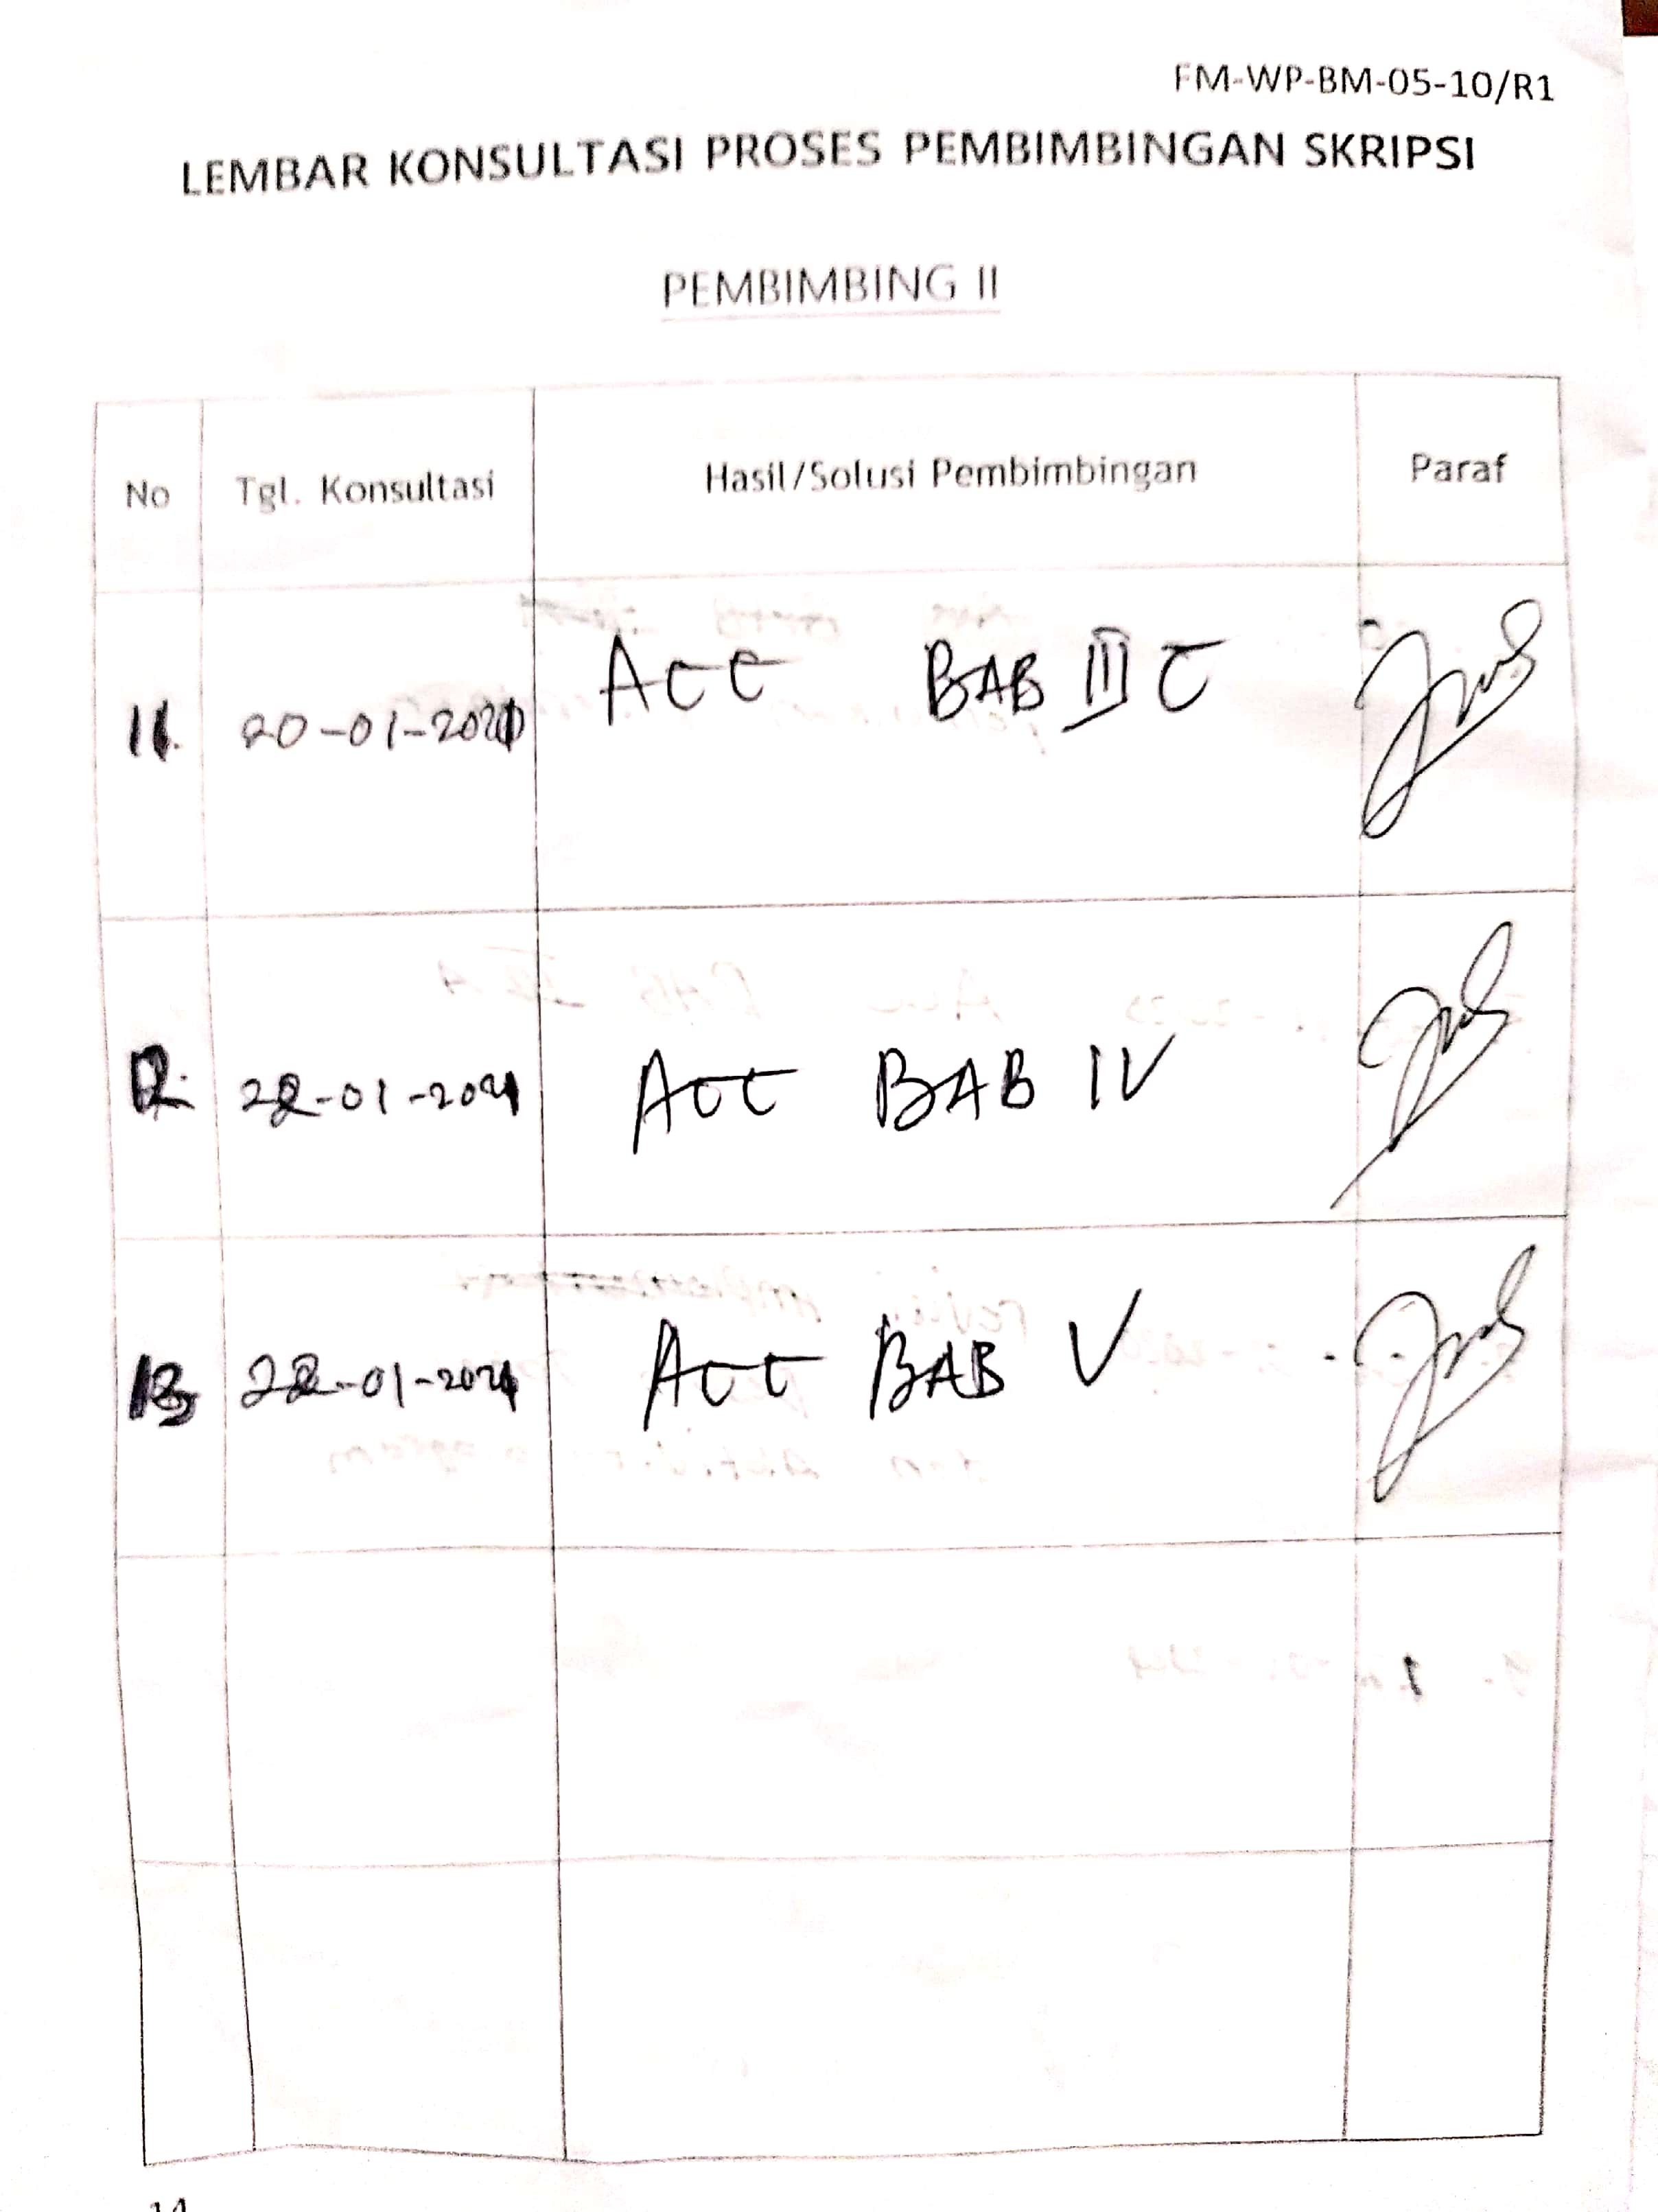 FM-WP-BM-05-10/R1
LEMBAR KONSULTASI PROSES PEMBIMBINGAN SKRIPSI
PEMBIMBING II
No Tgl. Konsultasi Hasil/Solusi Pembimbingan Paraf
11. 20-01-2021 Acc BAB III C
12. 22-01-2021 Acc BAB IV
13 22-01-2021 Acc BAB V
14